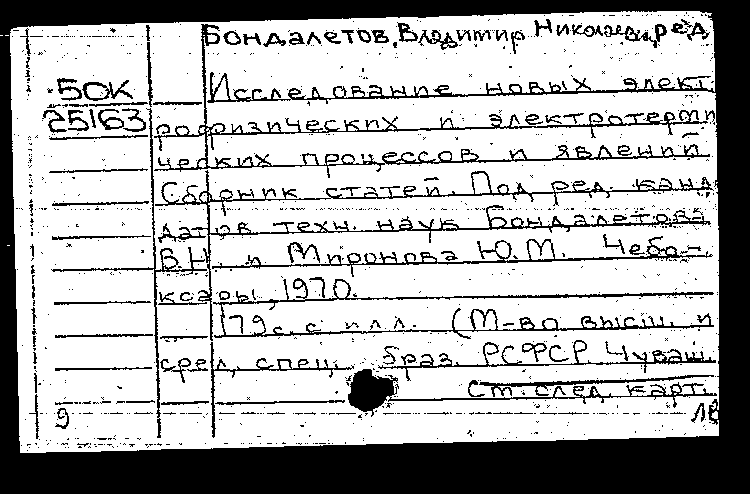 Бондалетов, Владимир Николаевич, ред.
50К Исследование новых элект
25163 рофизических и электротерми
ческих процессов и явлений
Сборник статей. Под ред. канд
датов техн. наук Бондалетова
В.Н. и Миронова Ю.М. Чебо-
ксары, 1970.
179 с. с илл. (М-во высш. и
сред, спец. браз. РСФСР. Чуваш.
См. след. карт.
9 ЛВ